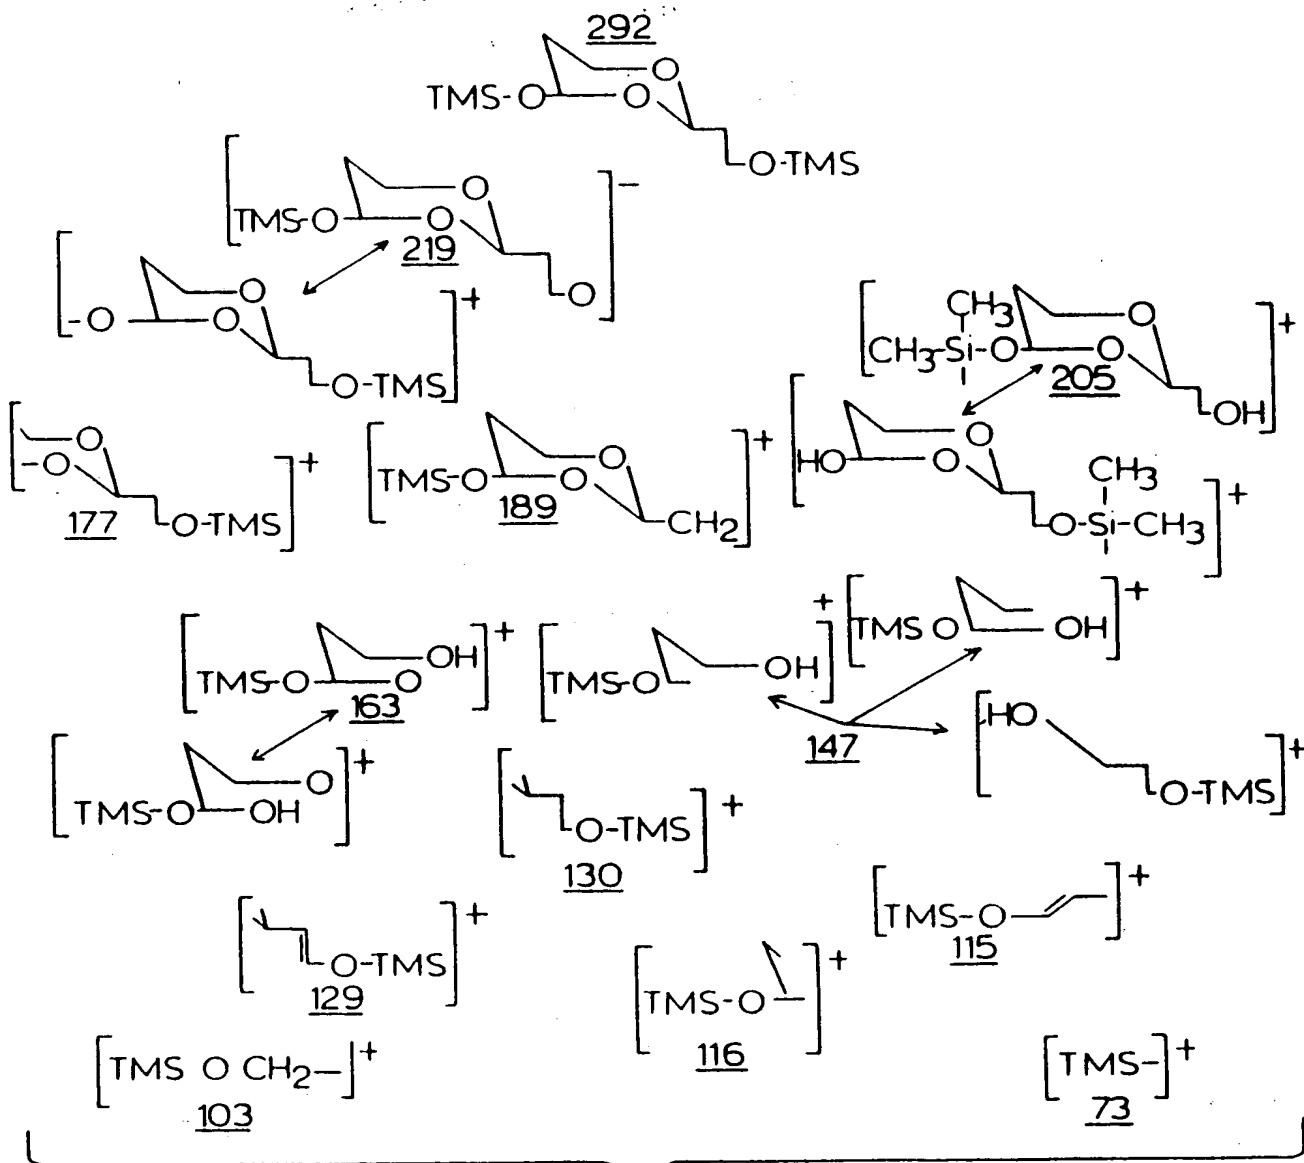 292
TMS-O
O
O
O-TMS
TMS-O
O
O
O
−
219
-O
O
O
O-TMS
+
CH3
CH3-Si-O
O
O
OH
+
205
HO
O
O
CH3
O-Si-CH3
+
O
-O
O-TMS
+
177
TMS-O
O
O
CH2
+
189
TMS-O
O
OH
+
163
TMS-O
OH
O
+
TMS-O
OH
+
TMS O
OH
+
147
HO
O-TMS
+
O-TMS
+
130
TMS-O
+
115
O-TMS
+
129
TMS-O
+
116
TMS O CH2-
+
103
TMS-
+
73